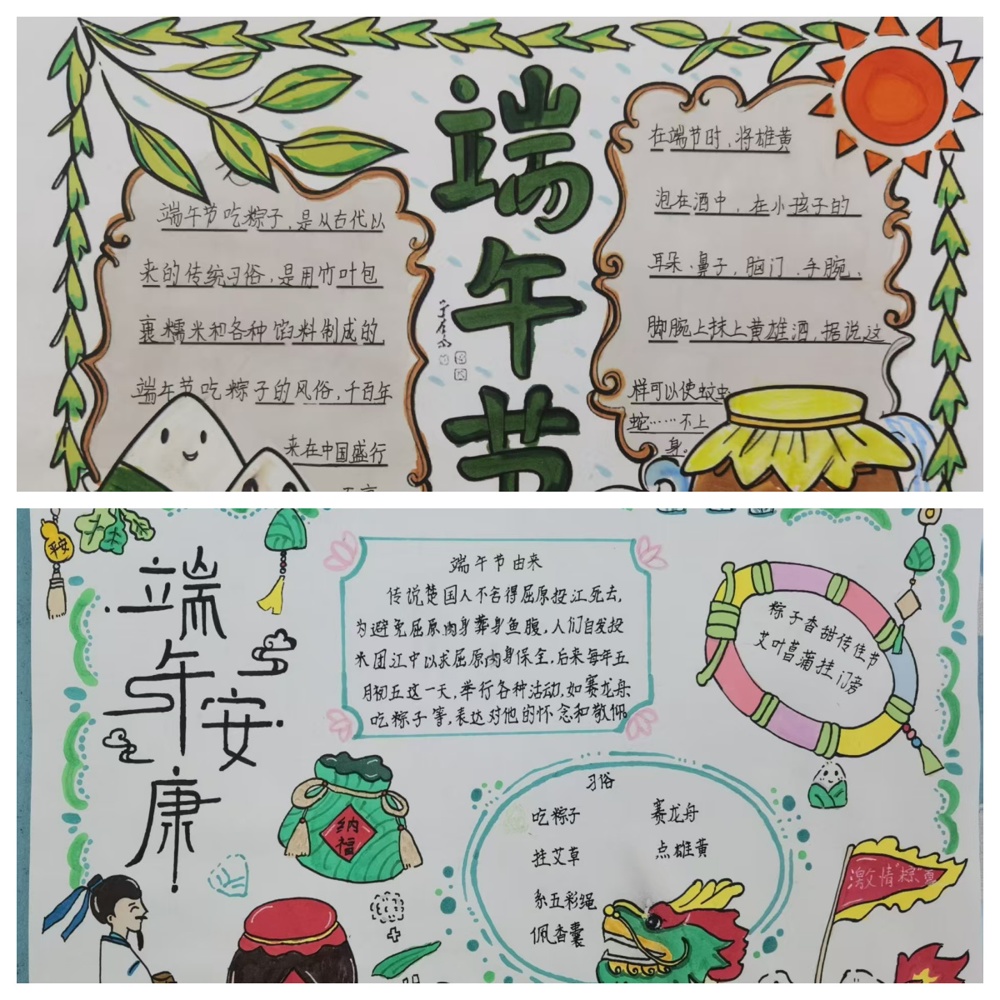 端午节
端午节吃粽子,是从古代以
来的传统习俗,是用竹叶包
裹糯米和各种馅料制成的
端午节吃粽子的风俗,千百年
来在中国盛行
在端节时,将雄黄
泡在酒中,在小孩子的
耳朵、鼻子,脑门、手腕、
脚腕上抹上黄雄酒,据说这
样可以使蚊虫
蛇……不上
身。
平安
端午安康
端午节由来
传说楚国人不舍得屈原投江死去,
为避免屈原肉身葬身鱼腹,人们自发投
米团江中以求屈原肉身保全,后来每年五
月初五这一天,举行各种活动,如赛龙舟
吃粽子等,表达对他的怀念和敬佩
粽子香甜传佳节
艾叶菖蒲挂门旁
纳福
习俗
吃粽子
赛龙舟
挂艾草
点雄黄
系五彩绳
佩香囊
激情"粽"夏